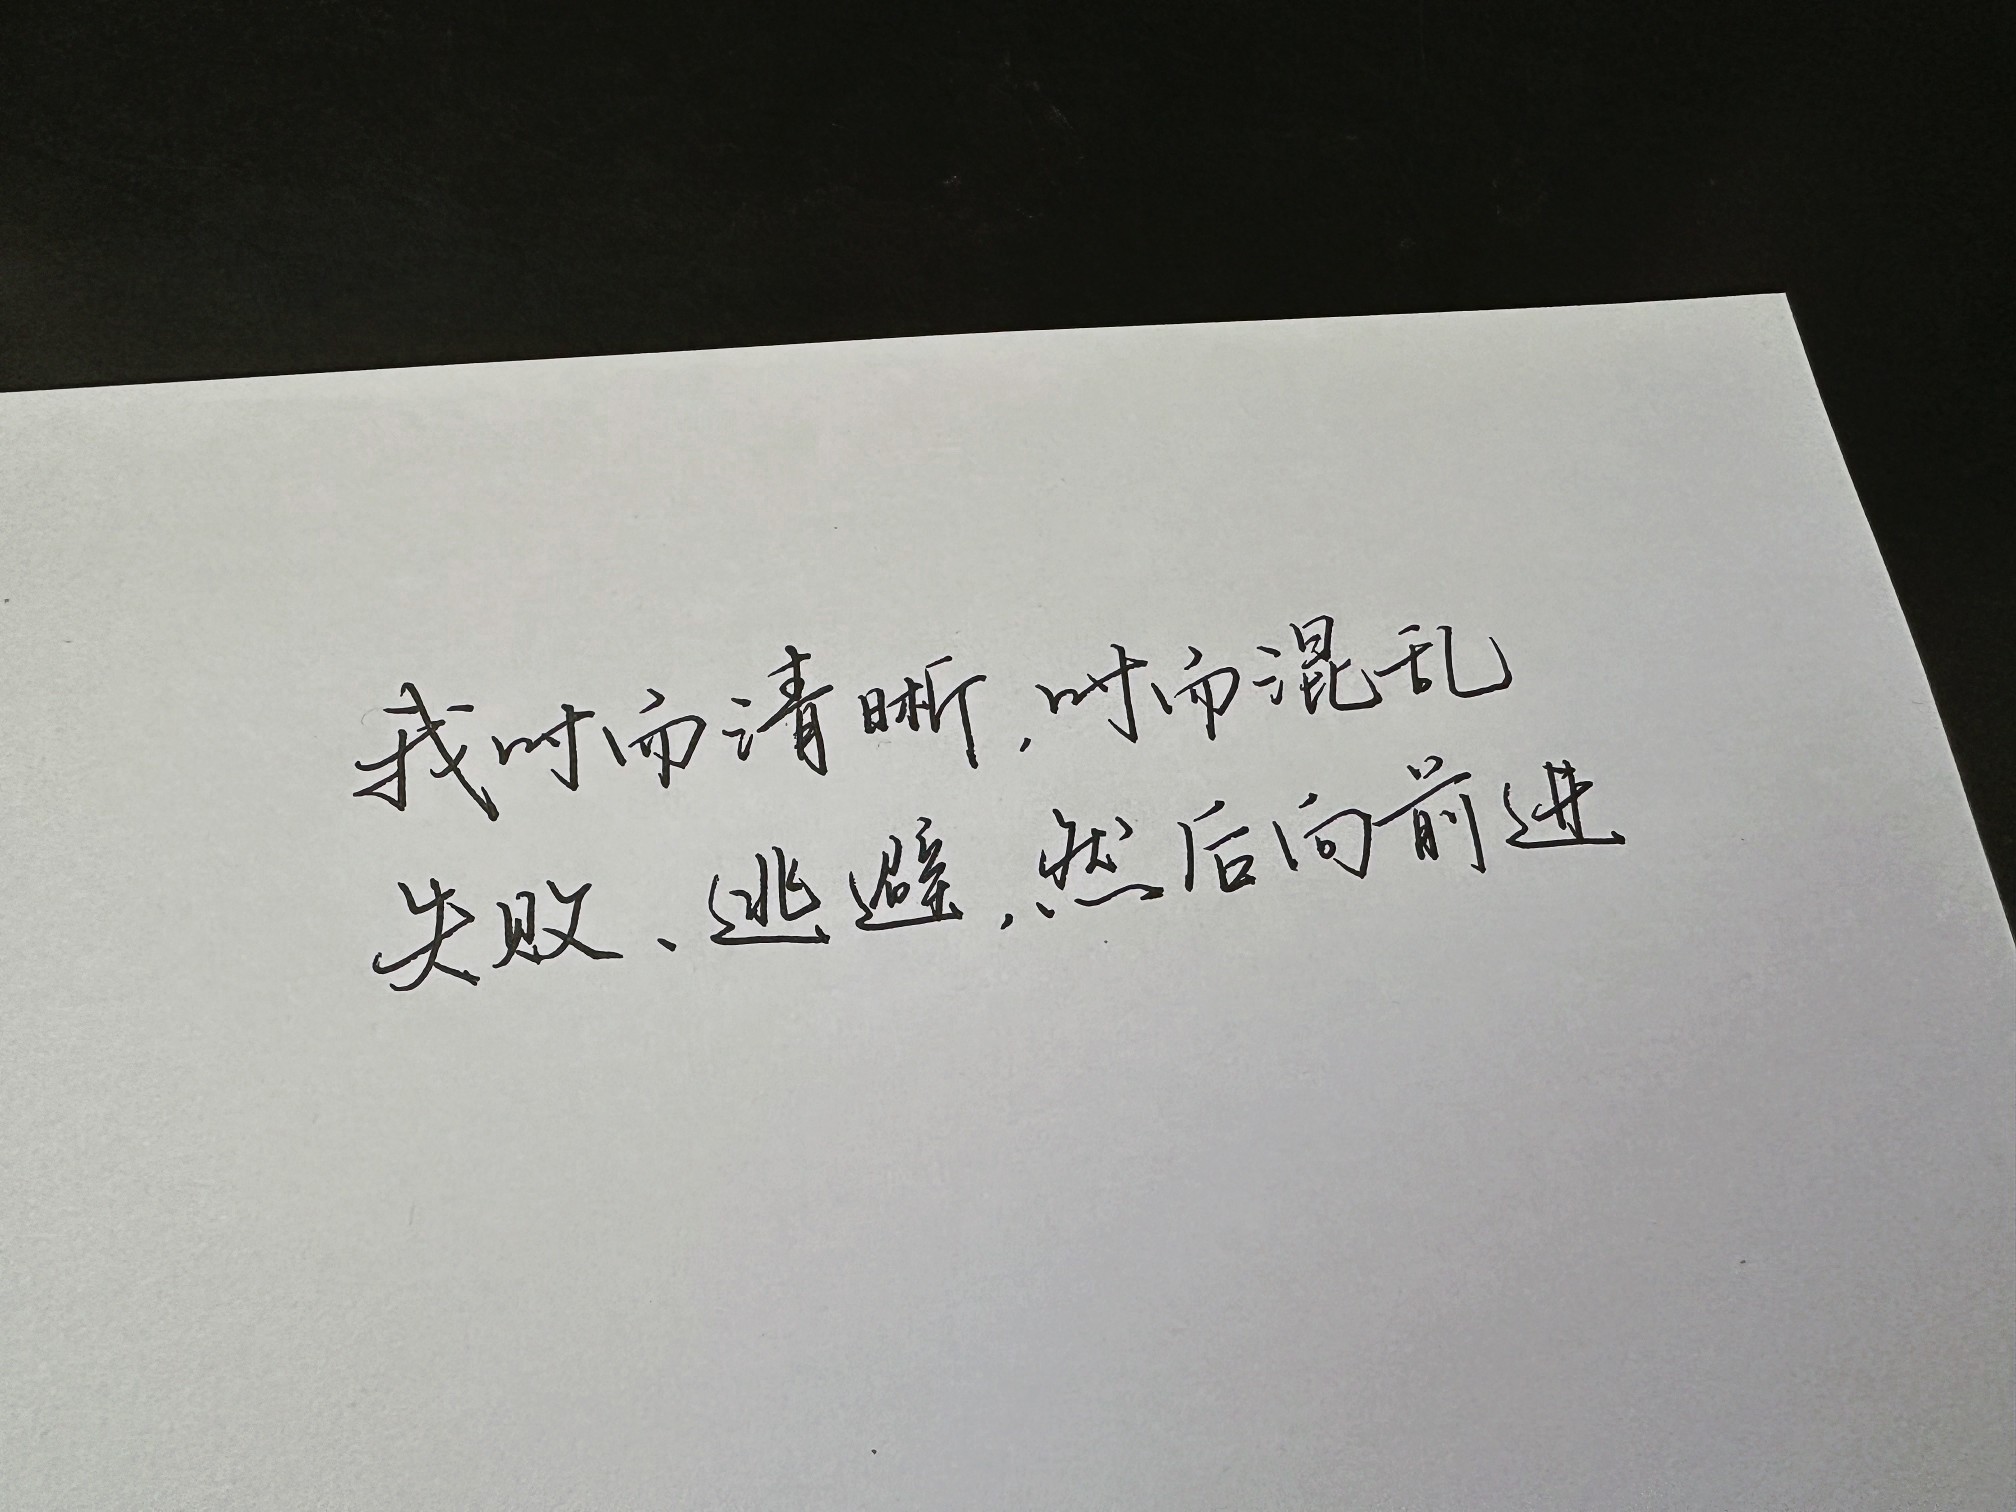 我时而清晰，时而混乱
失败、逃避，然后向前进